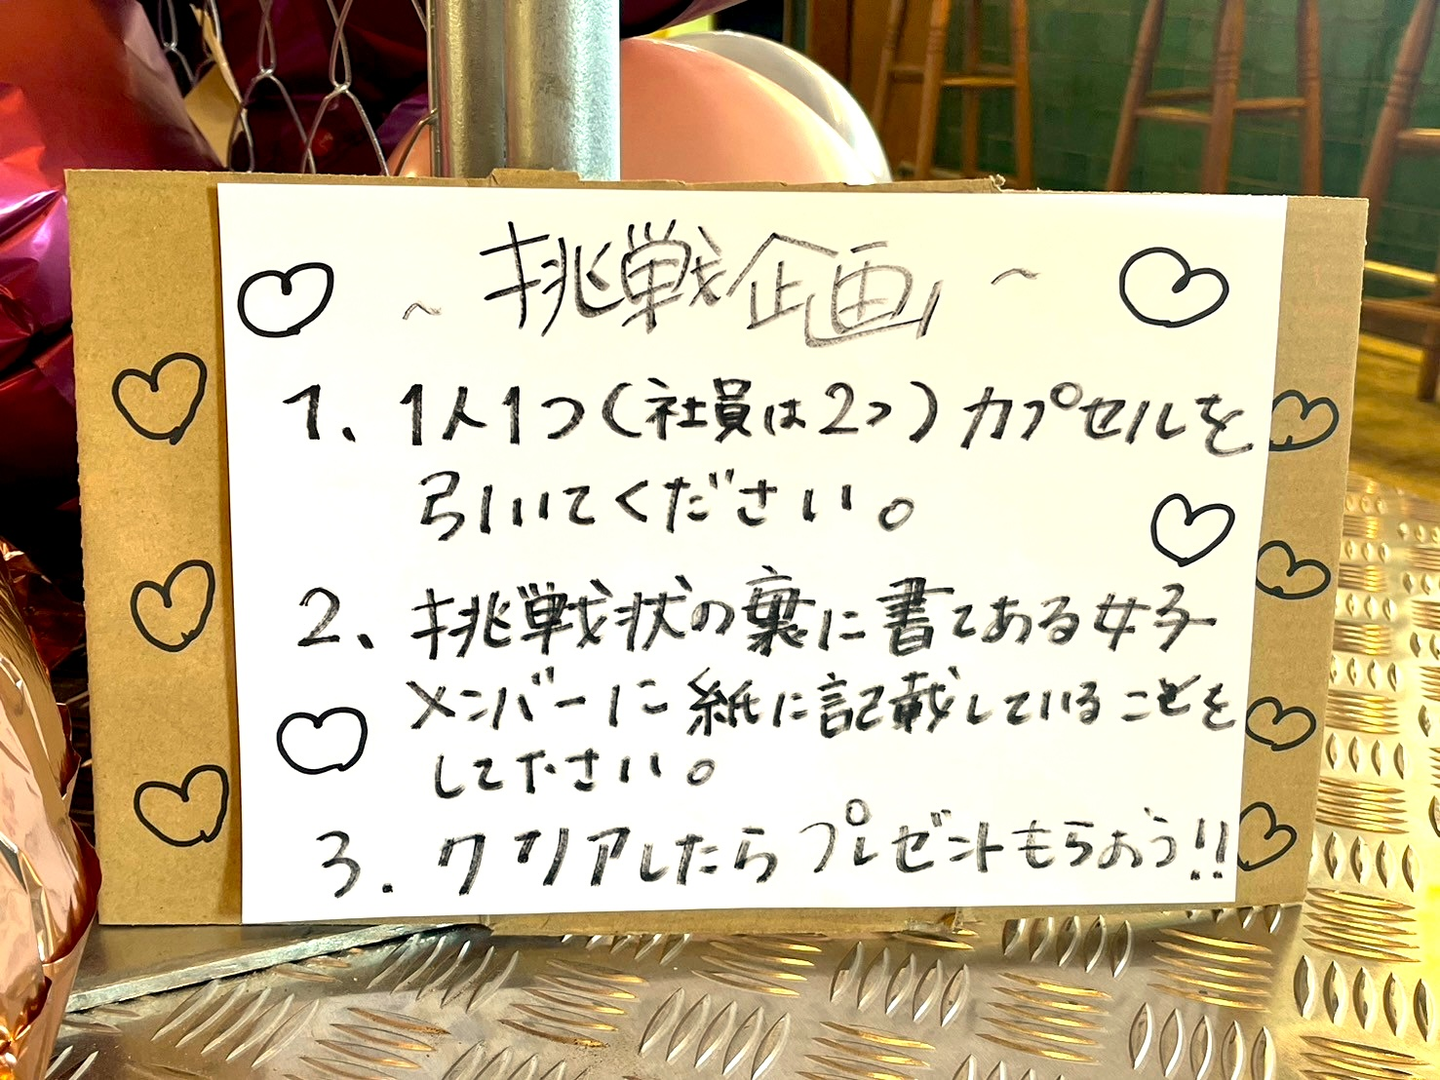 ~ 挑戦企画 ~
1. 1人1つ(社員は2つ)カプセルを
引いてください。
2、挑戦状の裏に書てある女子
メンバーに紙に記載していることを
してださい。
3. クリアしたらプレゼントもらおう!!